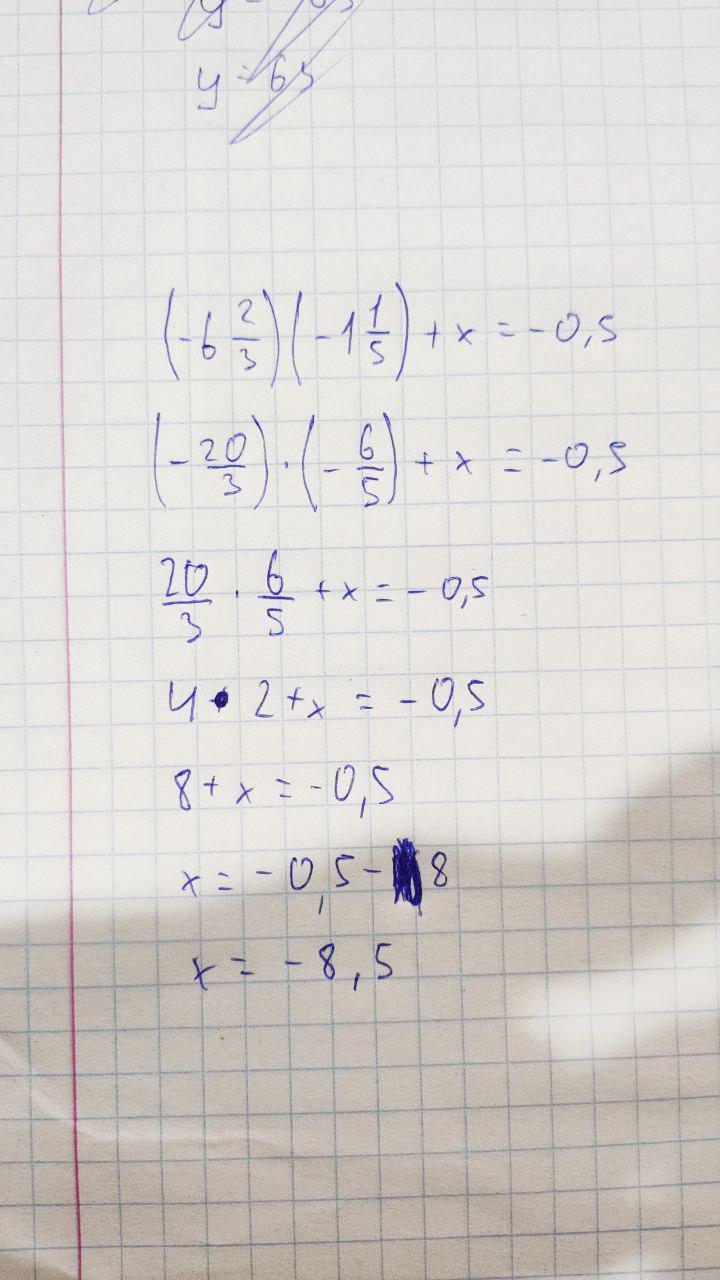 y = 65
(-6 2/3)(-1 1/5) + x = -0,5
(-20/3)·(-6/5) + x = -0,5
20/3 · 6/5 + x = -0,5
4 · 2 + x = -0,5
8 + x = -0,5
x = -0,5 - 8
x = -8,5